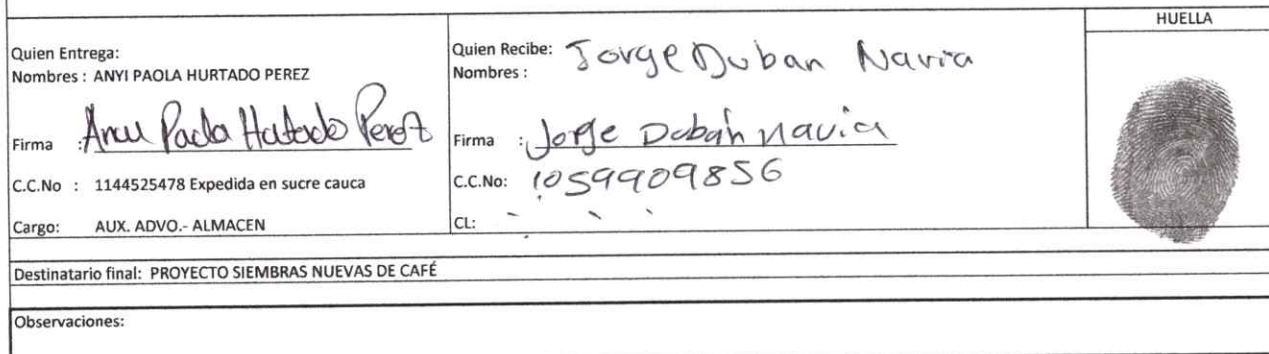 HUELLA
Quien Entrega:
Nombres : ANYI PAOLA HURTADO PEREZ
Firma : Anyi Paola Hurtado Perez
C.C.No : 1144525478 Expedida en sucre cauca
Cargo: AUX. ADVO.- ALMACEN
Quien Recibe: Jorge Duban Navia
Nombres :
Firma : Jorge Duban Navia
C.C.No: 1059909856
CL:
Destinatario final: PROYECTO SIEMBRAS NUEVAS DE CAFÉ
Observaciones: